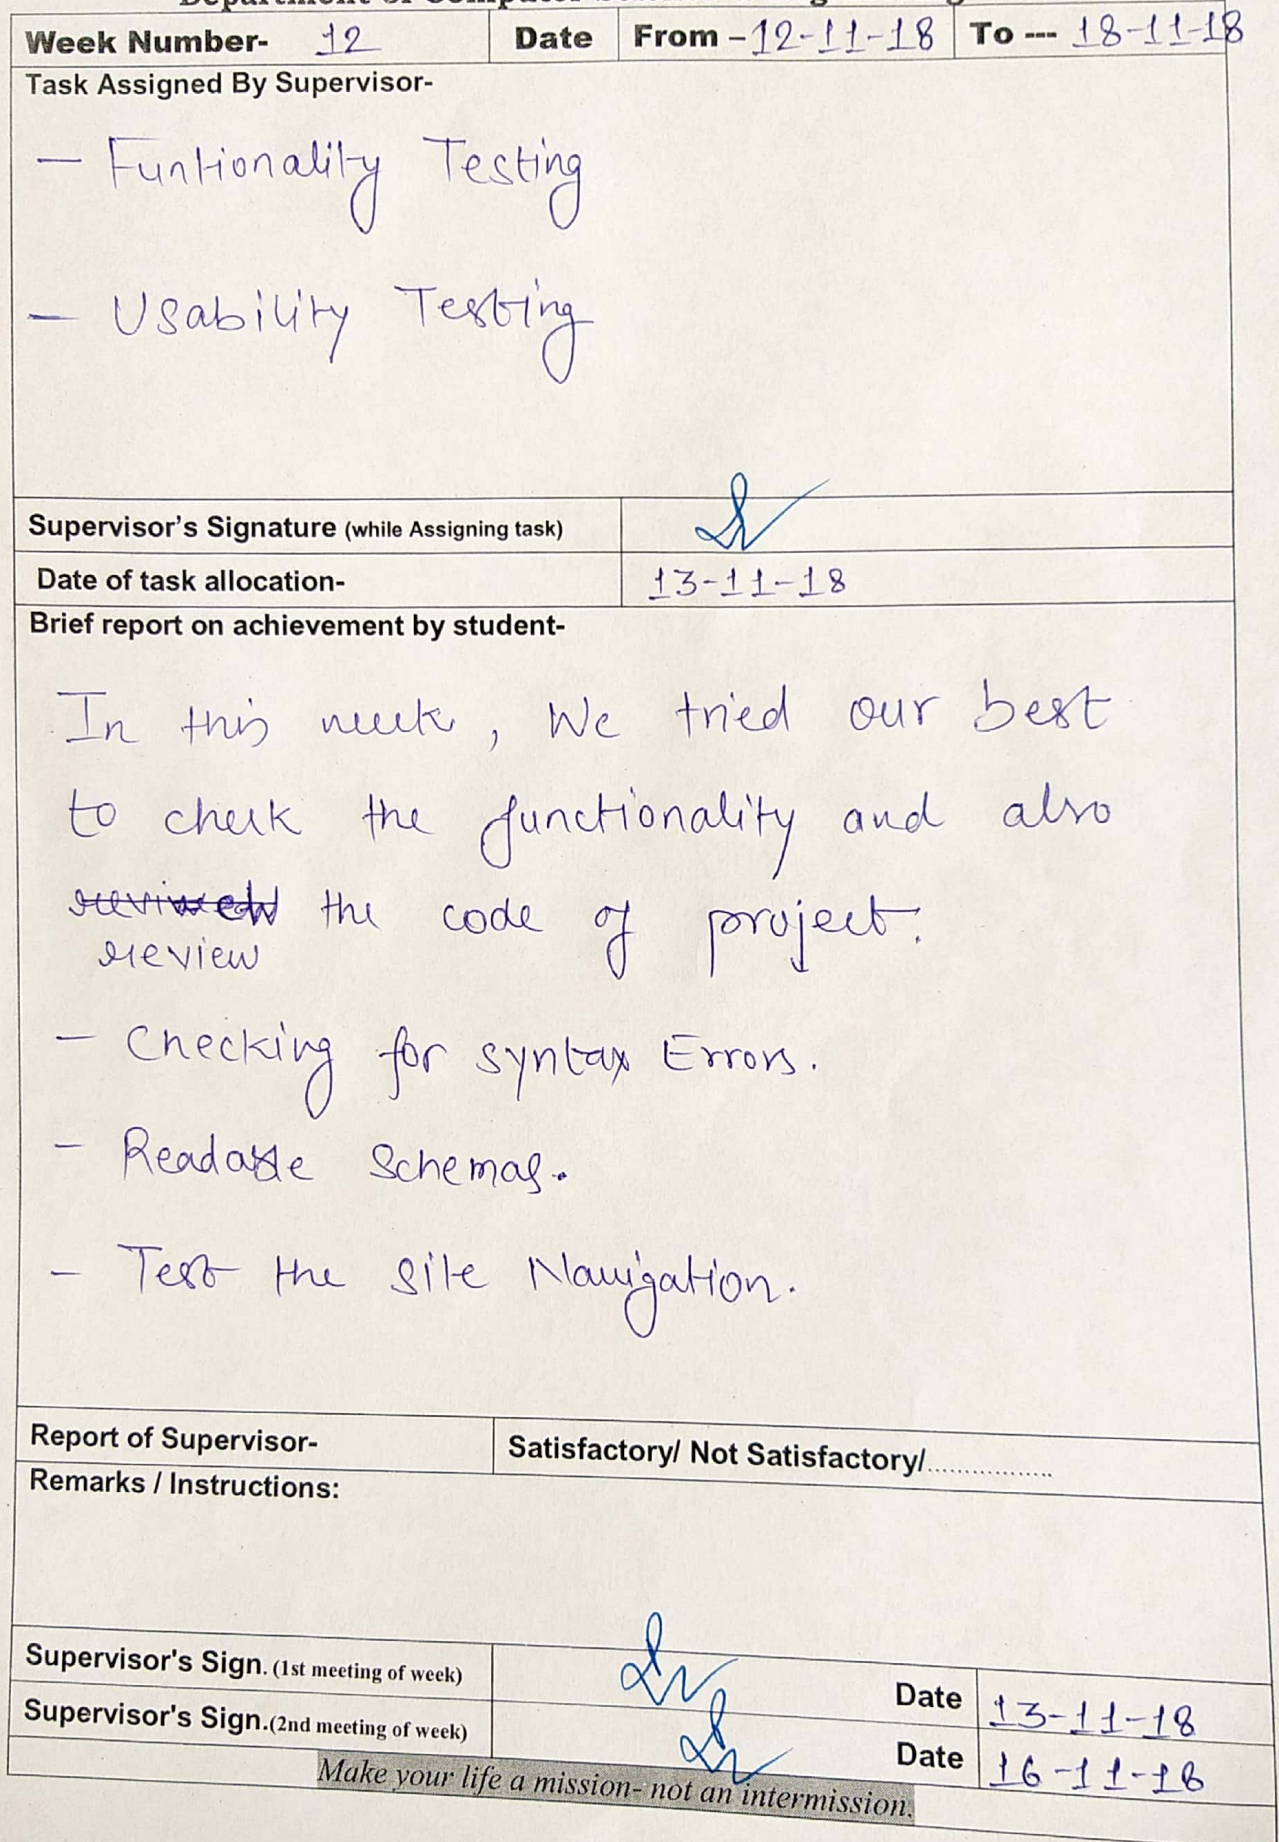 Week Number- 12 Date From - 12-11-18 To --- 18-11-18
Task Assigned By Supervisor-
- Funtionality Testing
- Usability Testing
Supervisor's Signature (while Assigning task)
Date of task allocation- 13-11-18
Brief report on achievement by student-
In this week, We tried our best
to check the functionality and also
the code of project.
review
- Checking for syntax Errors.
- Readable Schemas.
- Test the site Navigation.
Report of Supervisor- Satisfactory/ Not Satisfactory/.................
Remarks / Instructions:
Supervisor's Sign. (1st meeting of week) Date 13-11-18
Supervisor's Sign.(2nd meeting of week) Date 16-11-18
Make your life a mission- not an intermission.